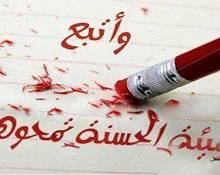 وأتبع
سيئة الحسنة تمحوها